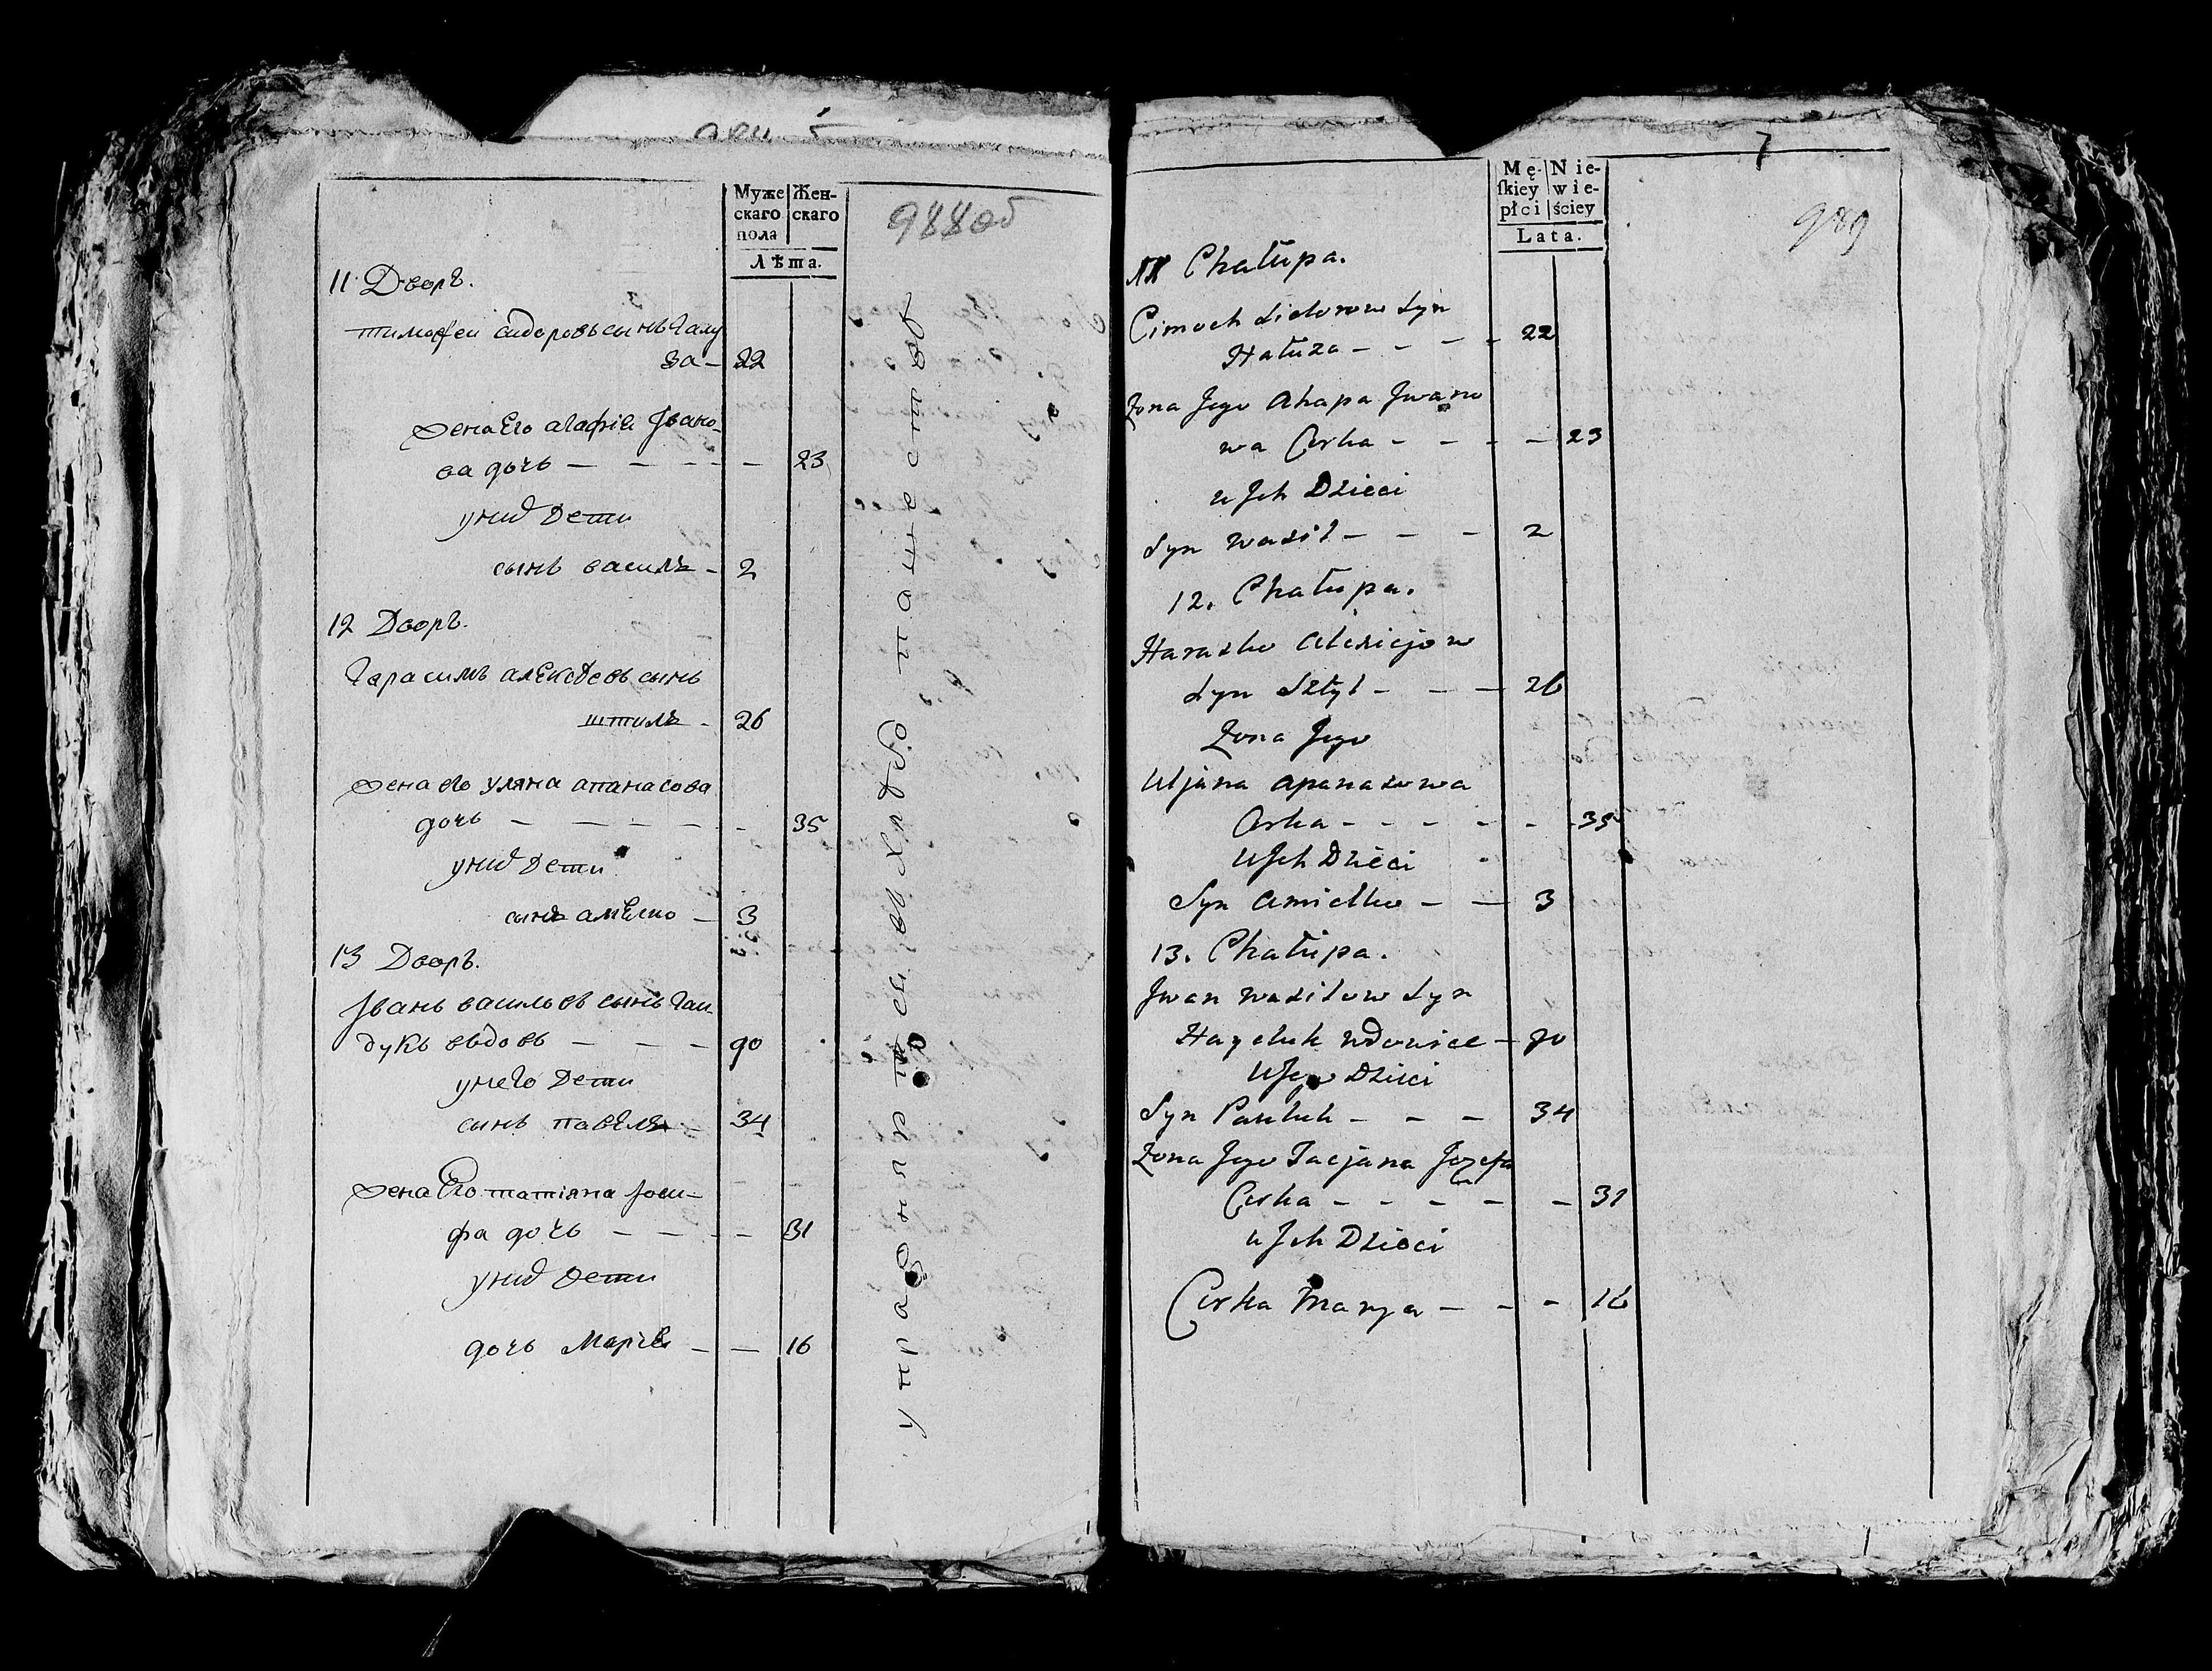 988об
Муже Жен-
скаго скаго
пола
Лѣта.
11 Дворъ.
тимофеи сидоровъ сынъ галу
за - 22
жена Его агафiя Iвано-
ва дочь - - - - - 23
униꙋ Дети
сынъ василь - 2
12 Дворъ.
Герасимъ алексѣевъ сынъ
штиль - 26
жена его уляна апанасова
дочь - - - - - - 35
униꙋ Дети
сынъ амелко - 3
13 Дворъ.
Iванъ васильовъ сынъ Гаи-
дукъ вдовъ - - - - 90
унего Дети
сынъ павель - 34
жена Его татiяна Iоси-
фа дочь - - - - 31
униꙋ Дети
дочь Марiя - - 16
7
989
Mę- Nie-
ſkiey wie-
płci ściey
Lata.
11 Chałupa.
Cimoch Sidorow Syn
Hałuza - - - - 22
Zona Jego Ahapa Jwano
wa Corka - - - - 23
u Jch Dzieci
Syn Wasil - - - 2
12. Chałupa.
Harasko Alexiejow
Syn Sztyl - - - 26
Zona Jego
Uljana Apanasowa
Corka - - - - - - 35
U Jch Dzieci
Syn Amielko - - 3
13. Chałupa.
Jwan Wasilow Syn
Hayduk Wdowiec - 90
U Jego Dzieci
Syn Pawluk - - - 34
Zona Jego Tacjana Jozefa
Corka - - - - - 31
u Jch Dzieci
Corka Marya - - - 16